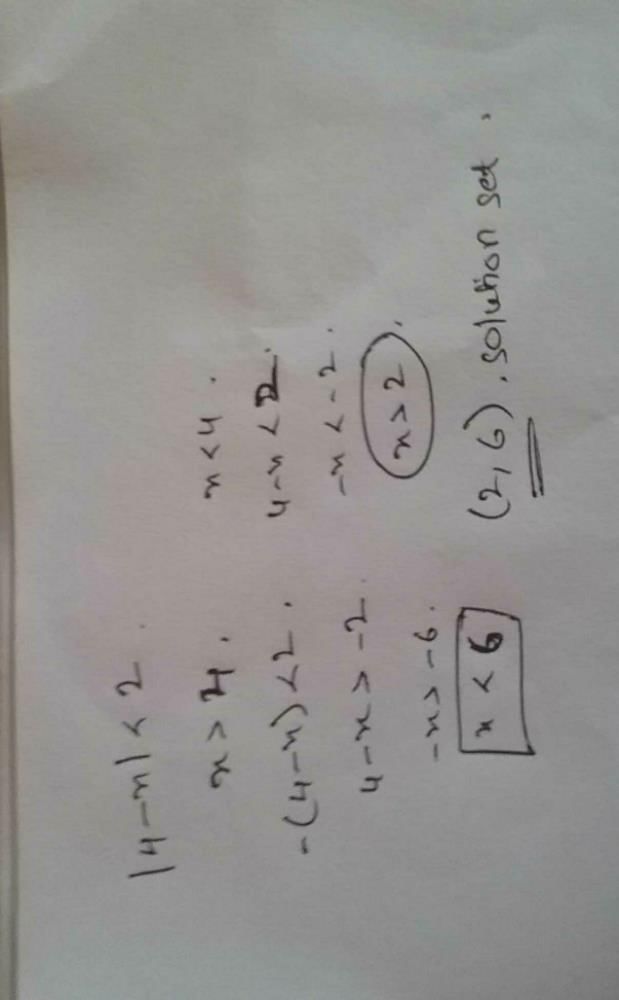 |4-x| < 2.
x > 4. x < 4.
-(4-x) < 2. 4-x < 2.
4-x > -2. -x < -2.
-x > -6. x > 2.
x < 6
(2,6). solution set.